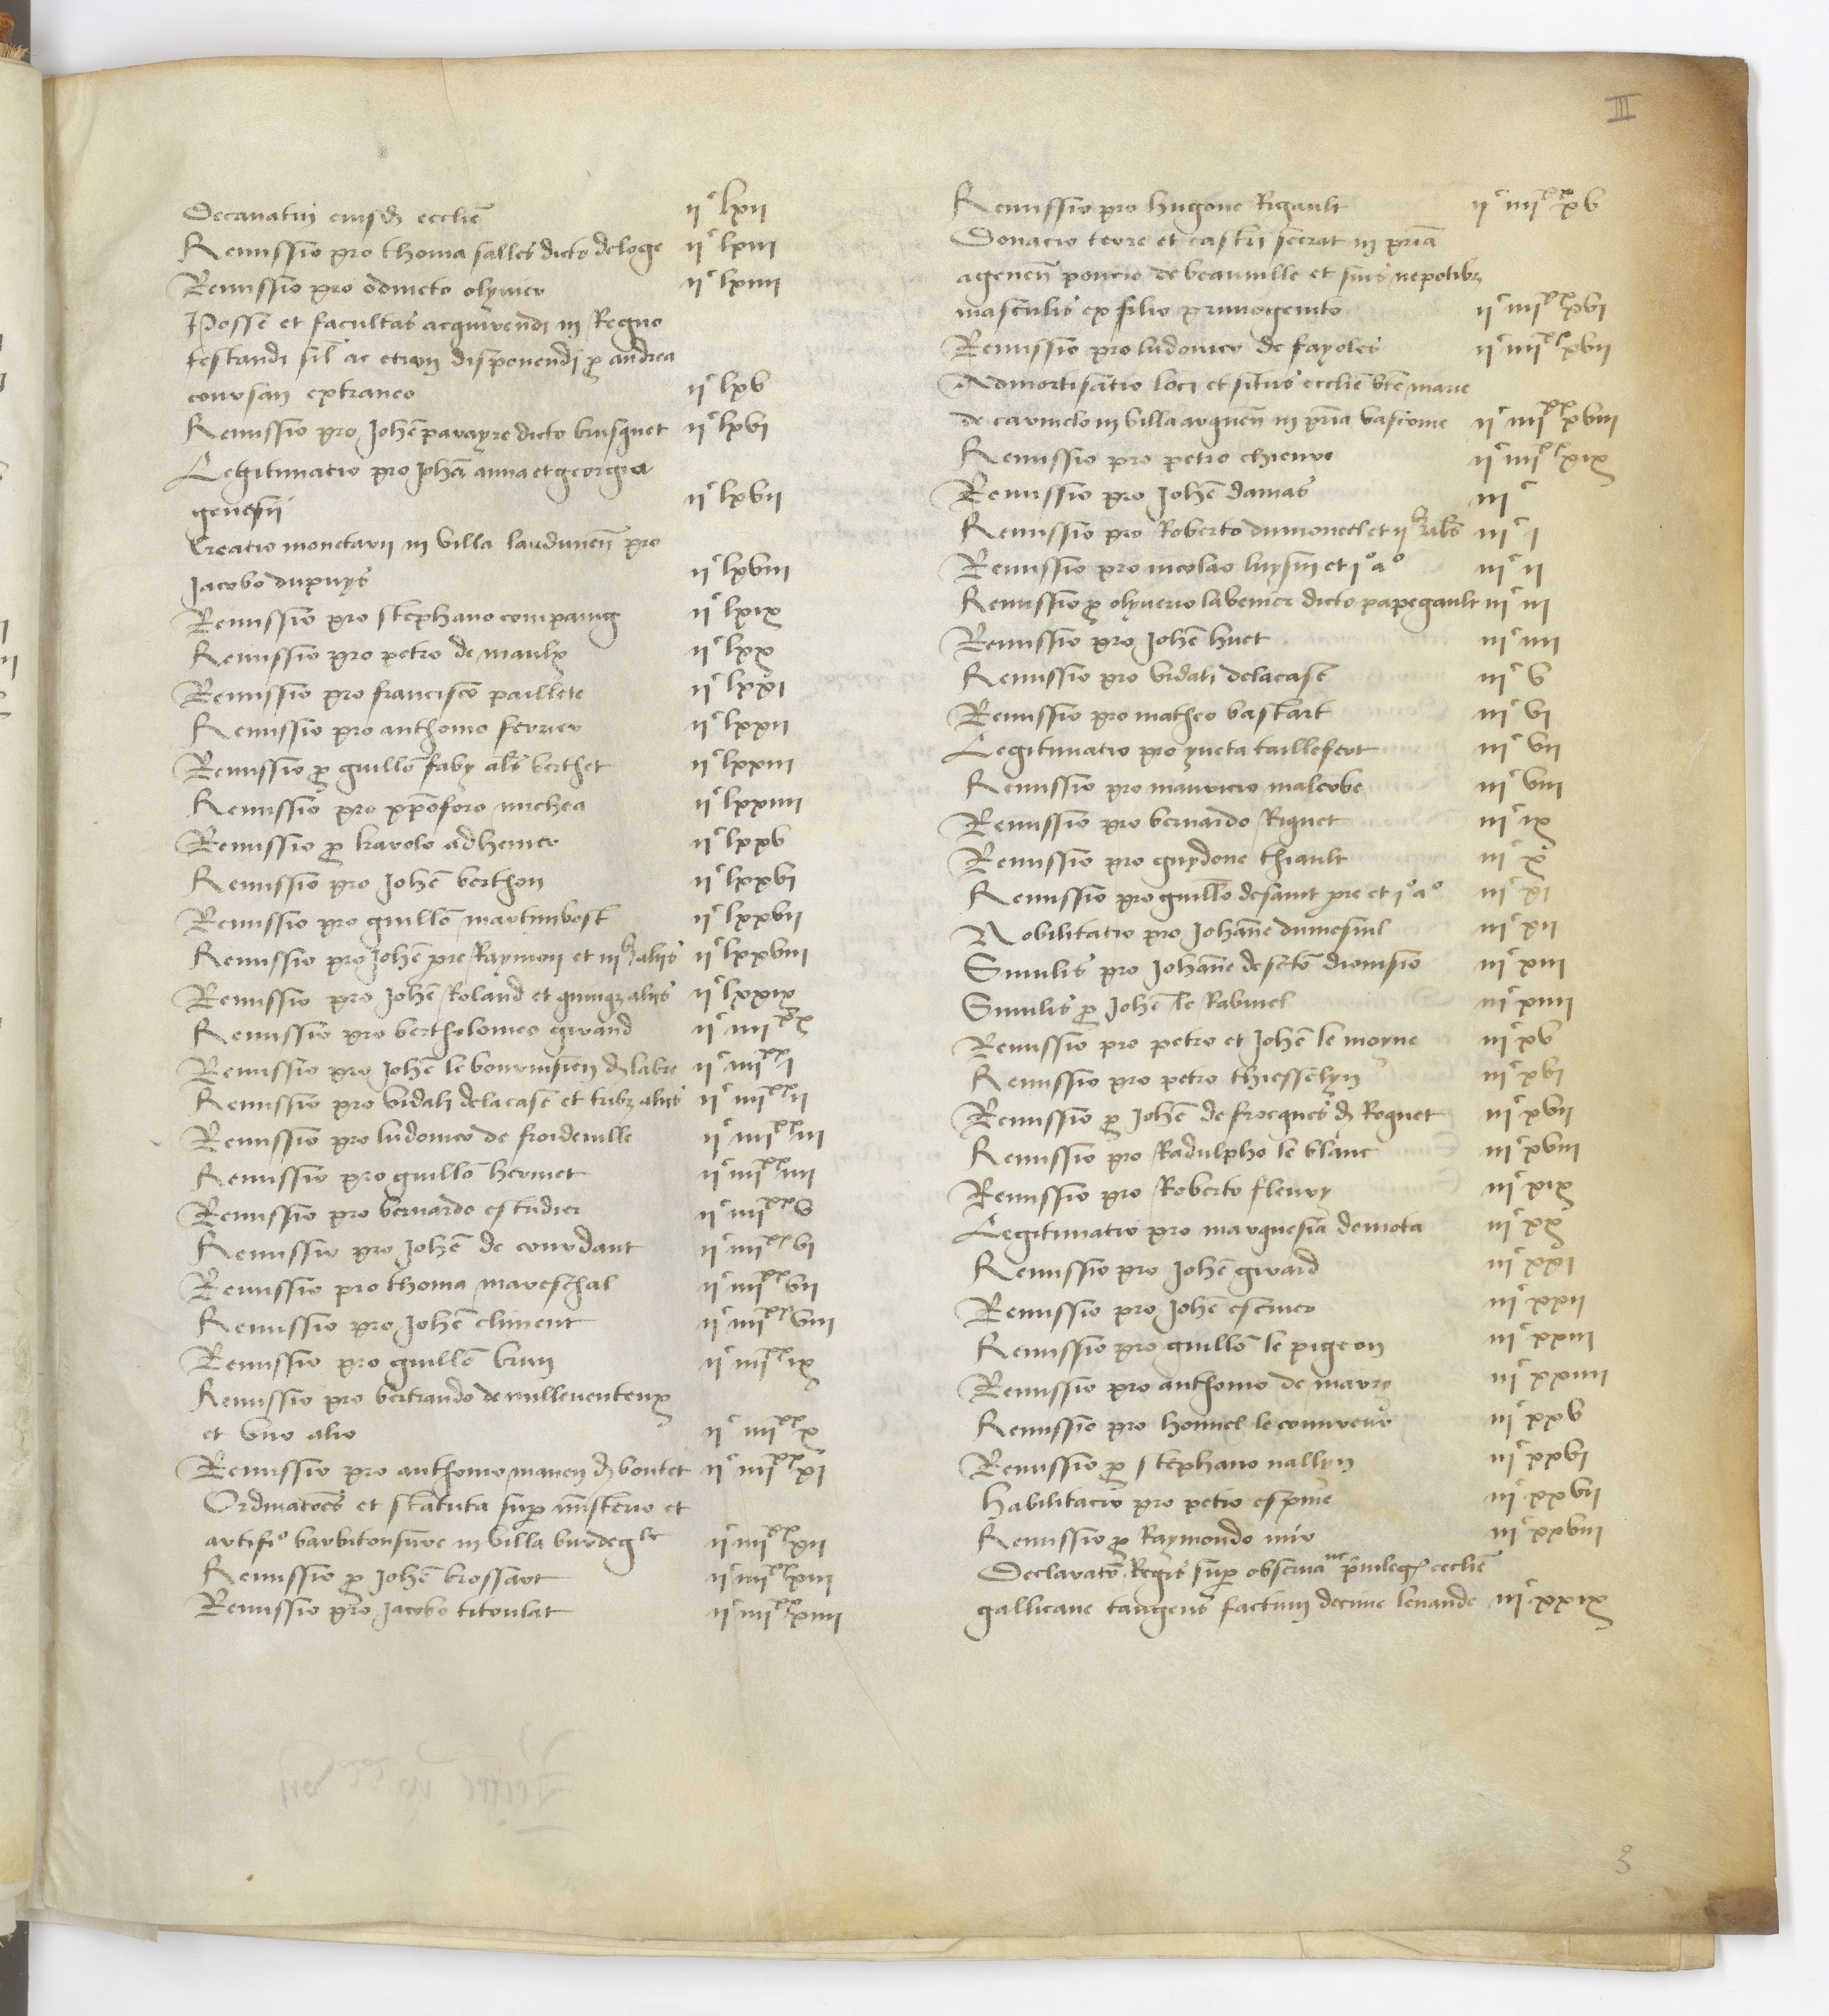 III
Decanatus eiusd ecclie iiᶜ lxii
Remissio pro thoma salles dicto deloge iiᶜ lxiii
Remissio pro odineto olyuier iiᶜ lxiiii
Posse et facultas acquirendi in Regno
testandi sil ac etiam disponendi p andrea
coursan extraneo iiᶜ lxv
Remissio pro Johē parayre dicto brusquet iiᶜ lxvi
Legitimatio pro Johā anna et georgia
genesii iiᶜ lxvii
Creatio monetarii in villa laudunen pro
Jacobo dupuys iiᶜ lxviii
Remissio pro stephano compaing iiᶜ lxix
Remissio pro petro de maulx iiᶜ lxx
Remissio pro francisco paillete iiᶜ lxxi
Remissio pro anthonio fevrier iiᶜ lxxii
Remissio p guillō faby als berthet iiᶜ lxxiii
Remissio pro xpoforo michea iiᶜ lxxiiii
Remissio p karolo adhemer iiᶜ lxxv
Remissio pro Johē berthon iiᶜ lxxvi
Remissio pro guillō martimbost iiᶜ lxxvii
Remissio pro Johē pre Raymon et iiiᵇ aliis iiᶜ lxxviii
Remissio pro Johē Roland et quinqz aliis iiᶜ lxxix
Remissio pro bertholomeo girand iiᶜ iiiiˣˣ
Remissio pro Johē le bourrusien d labre iiᶜ iiiiˣˣ i
Remissio pro vidali delacase et tribz aliis iiᶜ iiiiˣˣ ii
Remissio pro ludouico de froideville iiᶜ iiiiˣˣ iii
Remissio pro guillō hermet iiᶜ iiiiˣˣ iiii
Remissio pro bernardo estudier iiᶜ iiiiˣˣ v
Remissio pro Johē de courdant iiᶜ iiiiˣˣ vi
Remissio pro thoma mareschal iiᶜ iiiiˣˣ vii
Remissio pro Johē climent iiᶜ iiiiˣˣ viii
Remissio pro guillō brun iiᶜ iiiiˣˣ ix
Remissio pro bertrando de milleventeux
et uno alio iiᶜ iiiiˣˣ x
Remissio pro anthonio manen d boutet iiᶜ iiiiˣˣ xi
Ordinatōes et statuta sup misterio et
artifiᵒ barbitonsure in villa burdegˡᵉ iiᶜ iiiiˣˣ xii
Remissio p Johē brossart iiᶜ iiiiˣˣ xiii
Remissio pro Jacobo titoulat iiᶜ iiiiˣˣ xiiii
Remissio pro hugone Rigault iiᶜ iiiiˣˣ xv
Donacio terre et castri serrat in pria
agenen poncio de beauville et suis nepotibz
masculis ex filio primogenito iiᶜ iiiiˣˣ xvi
Remissio pro ludouico de fayoles iiᶜ iiiiˣˣ xvii
Admortisatio loci et situs ecclie bte marie
de carmelo in villa arquen in pria vasconie iiᶜ iiiiˣˣ xviii
Remissio pro petro chieure iiᶜ iiiiˣˣ xix
Remissio pro Johē damas iiiᶜ
Remissio pro Roberto dumoncel et iiᵇ als iiiᶜ i
Remissio pro nicolao luysin et iᵒ aᵒ iiiᶜ ii
Remissio p olyuerio labenier dicto papegault iiiᶜ iii
Remissio pro Johē huet iiiᶜ iiii
Remissio pro vidali delacase iiiᶜ v
Remissio pro matheo bastart iiiᶜ vi
Legitimatio pro yueta taillefert iiiᶜ vii
Remissio pro mauricio malerbe iiiᶜ viii
Remissio pro bernardo Riquet iiiᶜ ix
Remissio pro guydone thiault iiiᶜ x
Remissio pro guillō desaint pre et iᵒ aᵒ iiiᶜ xi
Nobilitatio pro Johāne dumesnil iiiᶜ xii
Similis pro Johāne de scto dionisio iiiᶜ xiii
Similis p Johē le Rabinel iiiᶜ xiiii
Remissio pro petro et Johē le moyne iiiᶜ xv
Remissio pro petro thiesselyn iiiᶜ xvi
Remissio p Johē de frocques d Roquet iiiᶜ xvii
Remissio pro Radulpho le blanc iiiᶜ xviii
Remissio pro Roberto fleury iiiᶜ xix
Legitimatio pro marquesia demota iiiᶜ xx
Remissio pro Johē girard iiiᶜ xxi
Remissio pro Johē escuier iiiᶜ xxii
Remissio pro guillō le pigeon iiiᶜ xxiii
Remissio pro anthonio de mary iiiᶜ xxiiii
Remissio pro honnel le couureur iiiᶜ xxv
Remissio p stephano nallyn iiiᶜ xxvi
Habilitacio pro petro espine iiiᶜ xxvii
Remissio p Raymondo mir iiiᶜ xxviii
Declaratō Regis sup obseruaⁿᵉ priuileg ecclie
gallicane tangens factum decime leuande iiiᶜ xxix
3